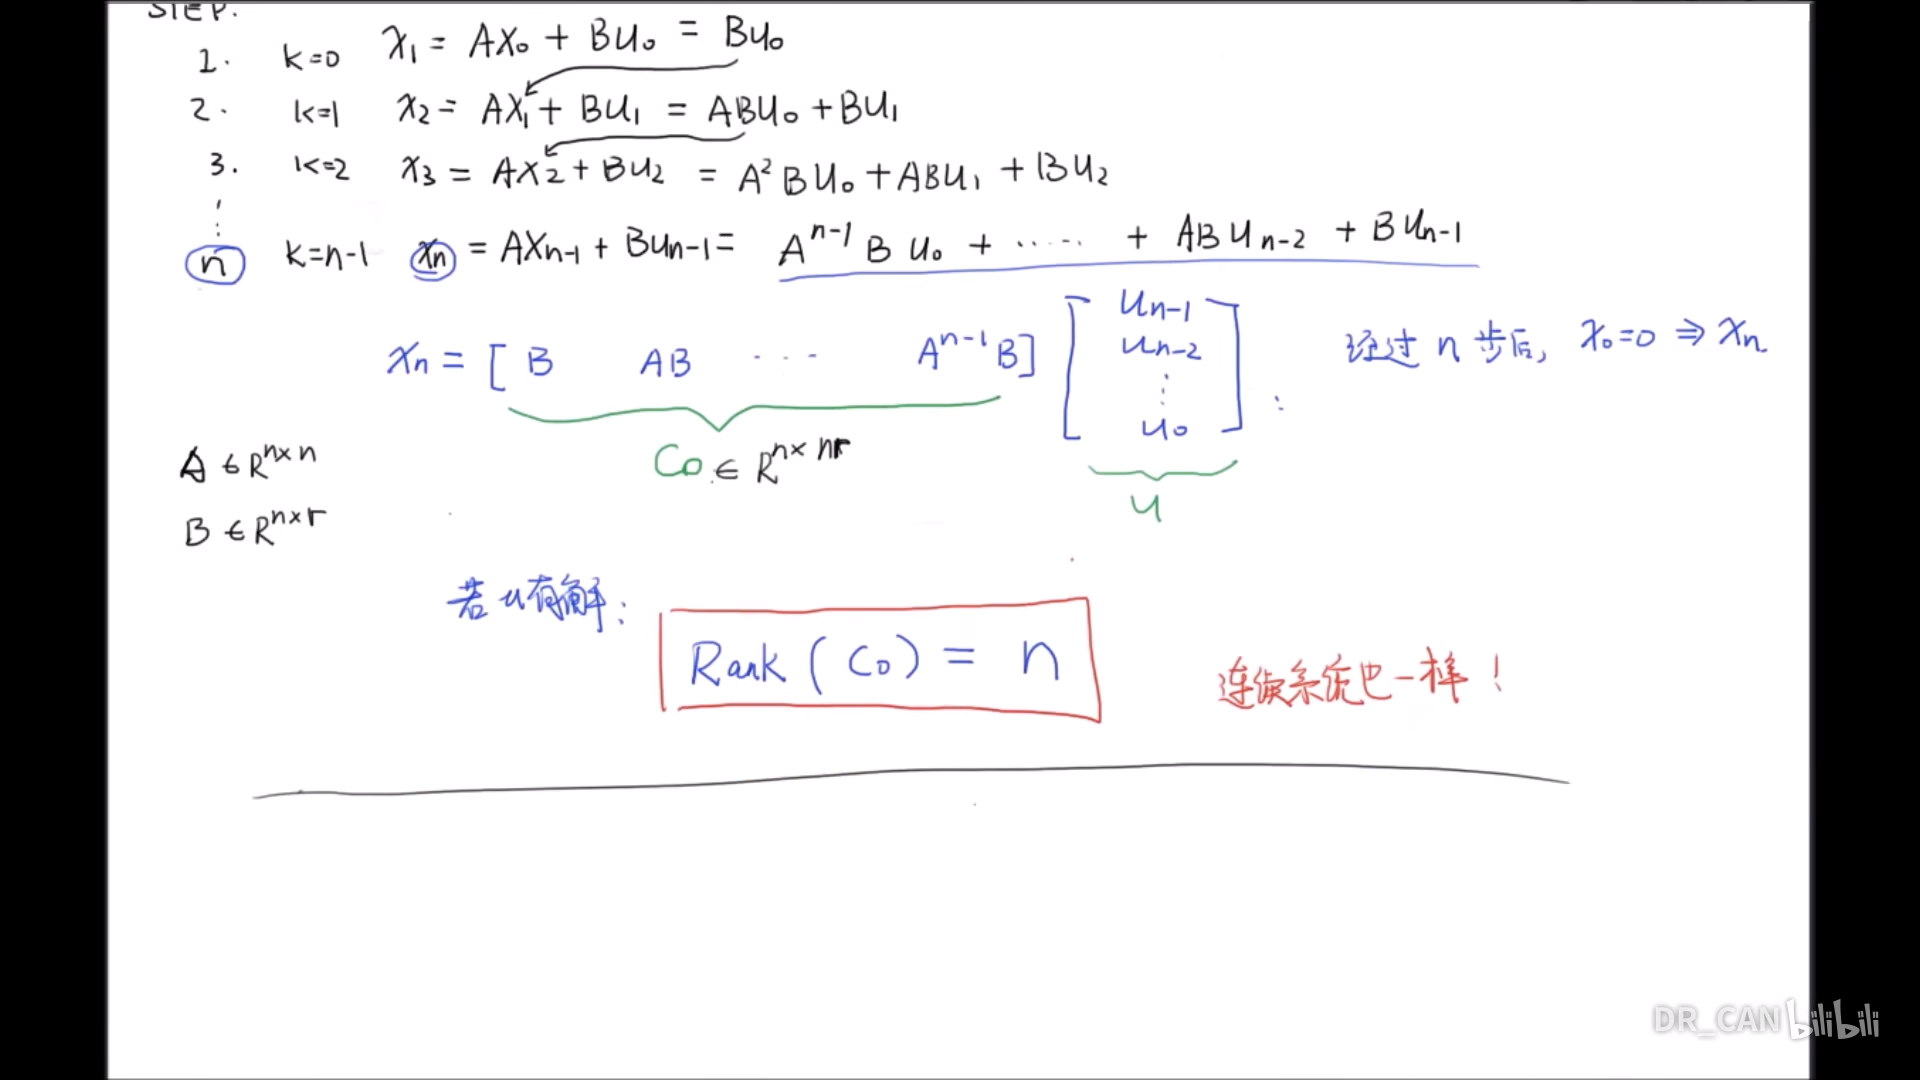 STEP.
1. k=0 x₁ = Ax₀ + Bu₀ = Bu₀
2. k=1 x₂ = Ax₁ + Bu₁ = ABu₀ + Bu₁
3. k=2 x₃ = Ax₂ + Bu₂ = A²Bu₀ + ABu₁ + Bu₂
⋮
n k=n-1 xₙ = Axₙ₋₁ + Buₙ₋₁ = Aⁿ⁻¹Bu₀ + ······ + ABuₙ₋₂ + Buₙ₋₁
xₙ = [B AB ··· Aⁿ⁻¹B] [uₙ₋₁ uₙ₋₂ ⋮ u₀] 经过 n 步后, x₀=0 ⇒ xₙ
A ∈ Rⁿˣⁿ
Co ∈ Rⁿˣⁿʳ
u
B ∈ Rⁿˣʳ
若u有解:
Rank (Co) = n
连续系统也一样!
DR_CAN bilibili